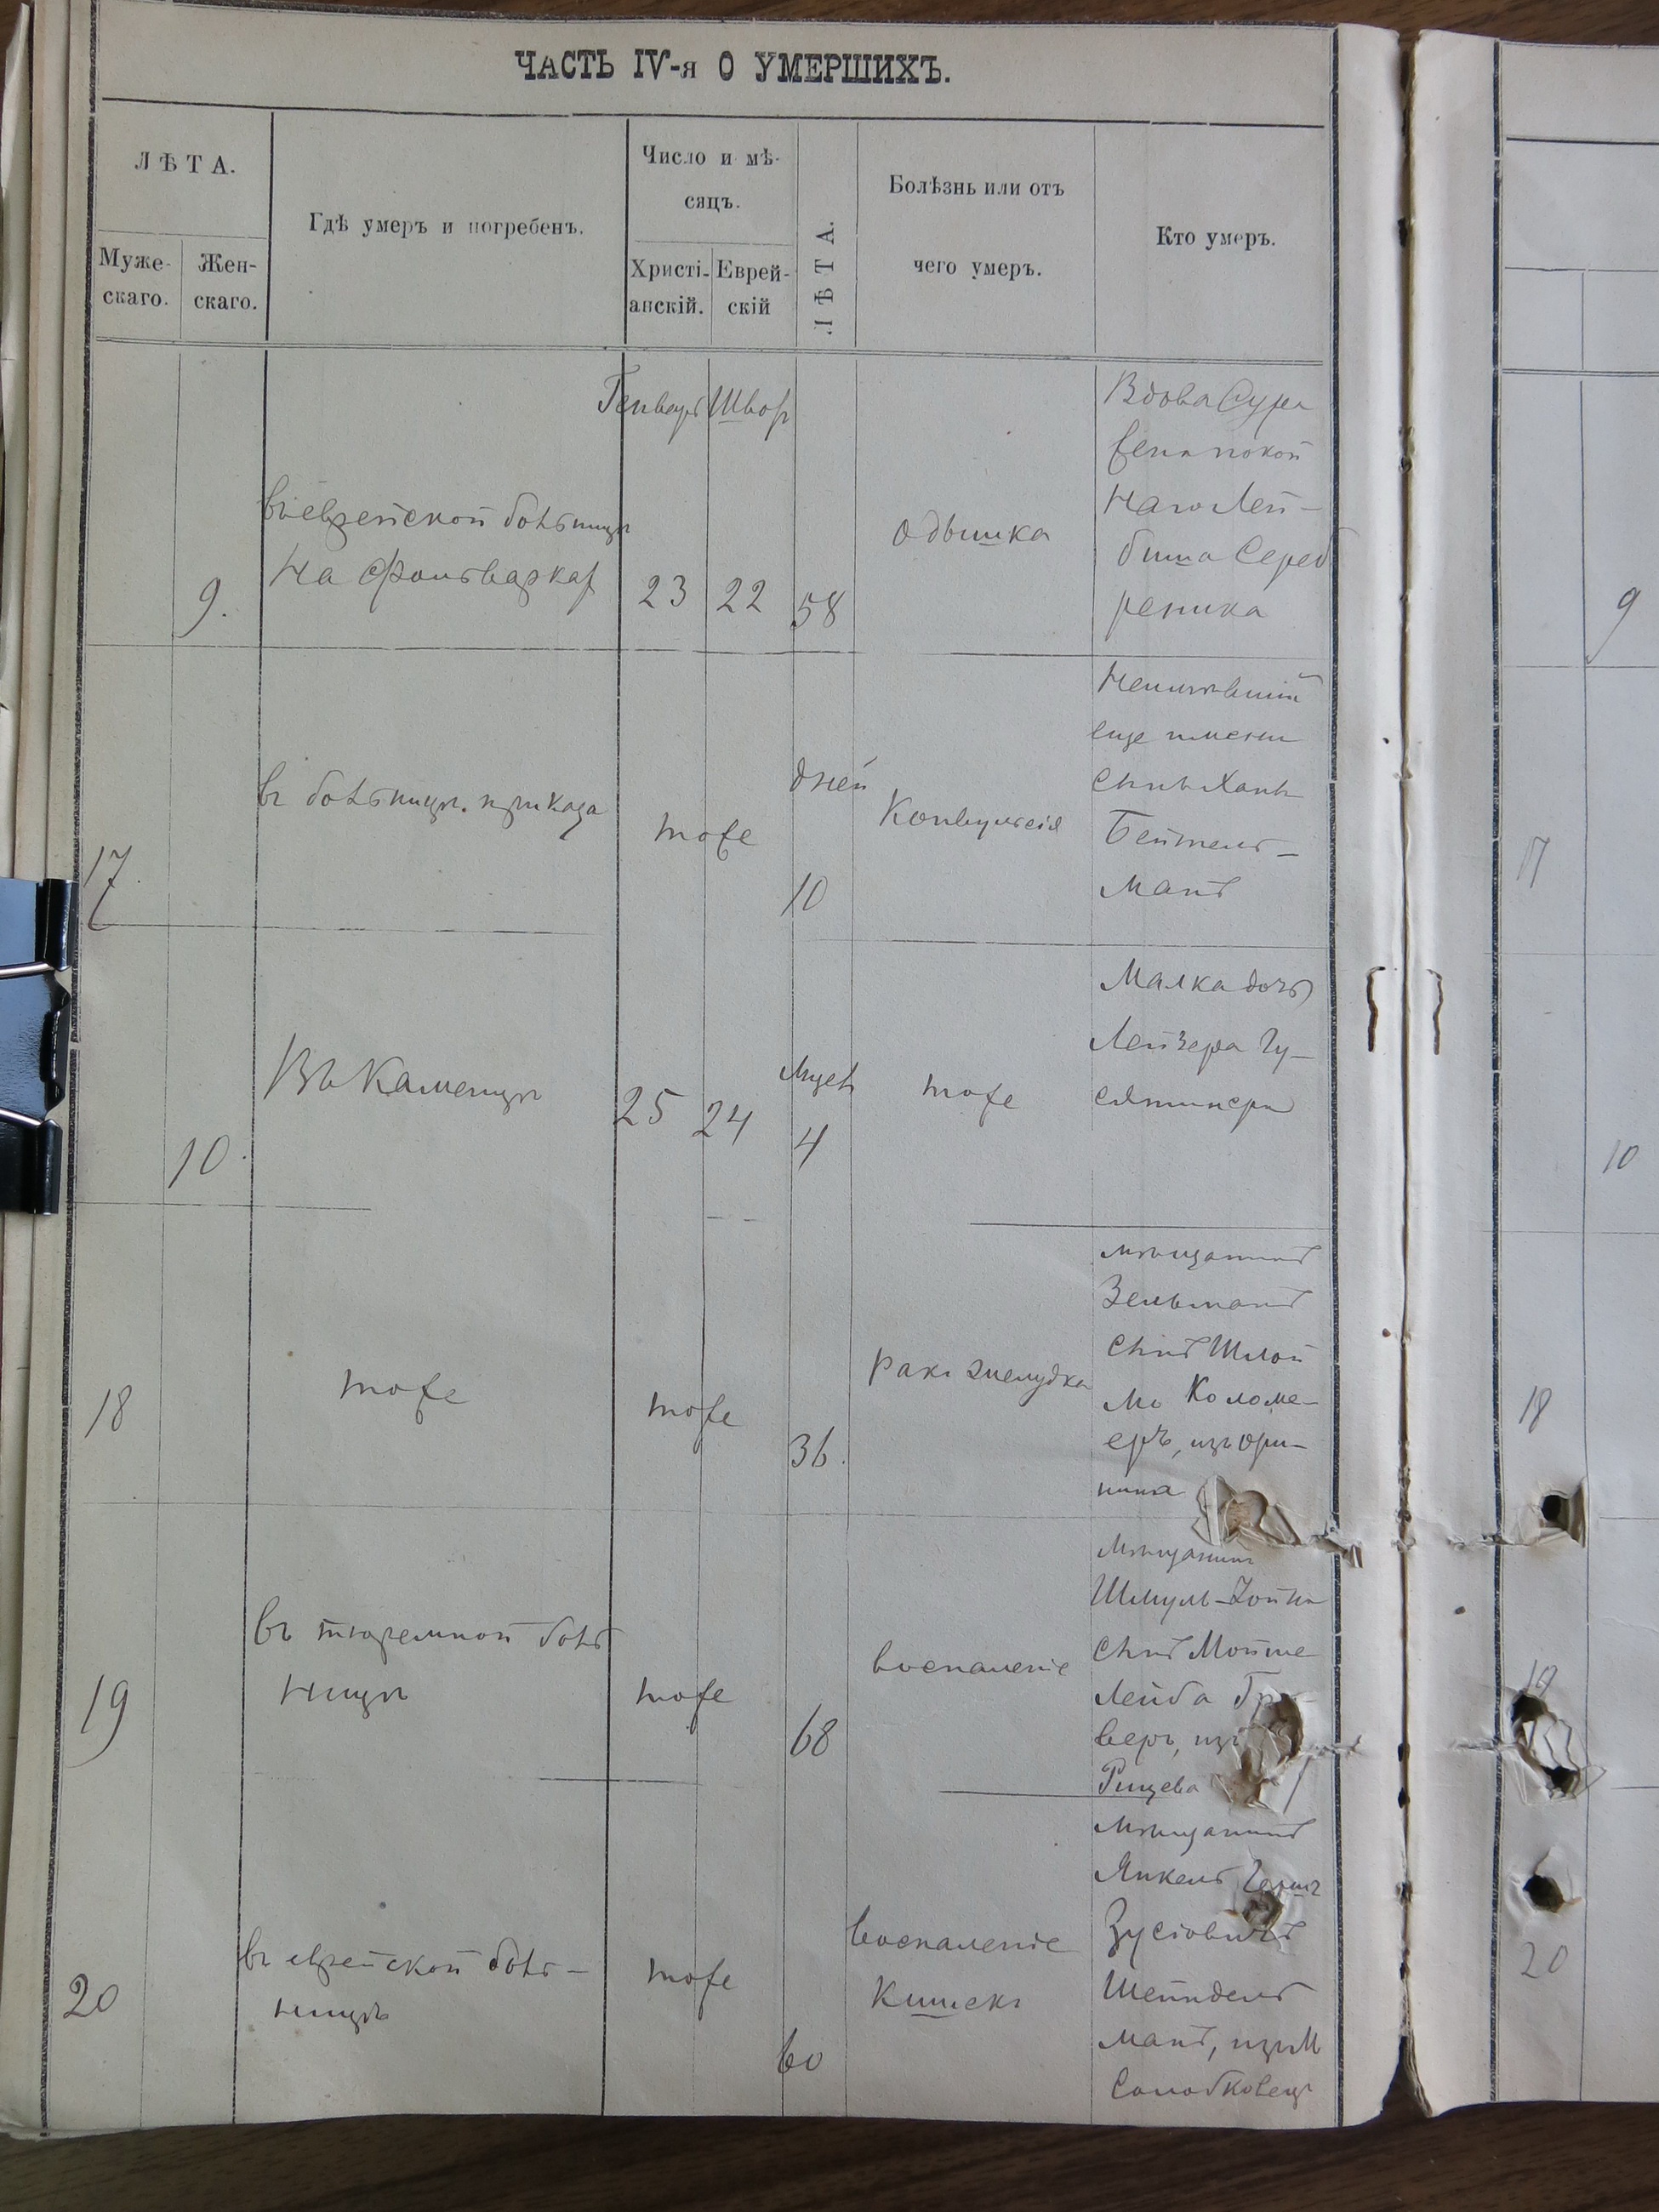 ЧАСТЬ IV-я О УМЕРШИХЪ.
ЛѢТА.
Муже-
скаго.
Жен-
скаго.
Гдѣ умеръ и погребенъ.
Число и мѣ-
сяцъ.
Христі-
анскій.
Еврей-
скій
ЛѢТА.
Болѣзнь или отъ
чего умеръ.
Кто умеръ.
Генварь Шват
9.
въ еврейской больницѣ
на Фольваркахъ
23
22
58
одышка
Вдова Сура
жена покой
наго Лей-
биша Сереб
реника
9
17.
въ больницѣ приказа
тоже
дней
10
Конвульсія
Неимѣвшій
еще имени
сынъ Ханы
Бейтель-
манъ
17
10.
Въ Каменцѣ
25
24
Мцев
4
тоже
Малка дочь
Лейзера Гу-
сятинера
10
18
тоже
тоже
36.
ракъ желудка
мѣщанинъ
Зельманъ
сынъ Шлой
мы Коломе-
еръ, изъ Ори-
нина
18
19
въ тюремной боль
ницѣ
тоже
68
воспаленіе
мѣщанинъ
Шмуль-Хоина
сынъ Мойше
Лейба
веръ, изъ
19
20
въ еврейской боль-
ницѣ
тоже
60
воспаленіе
кишекъ
мѣщанинъ
Янкель Гершъ
Зусіовичъ
Шейндель
манъ, изъ М
Солобковец
20